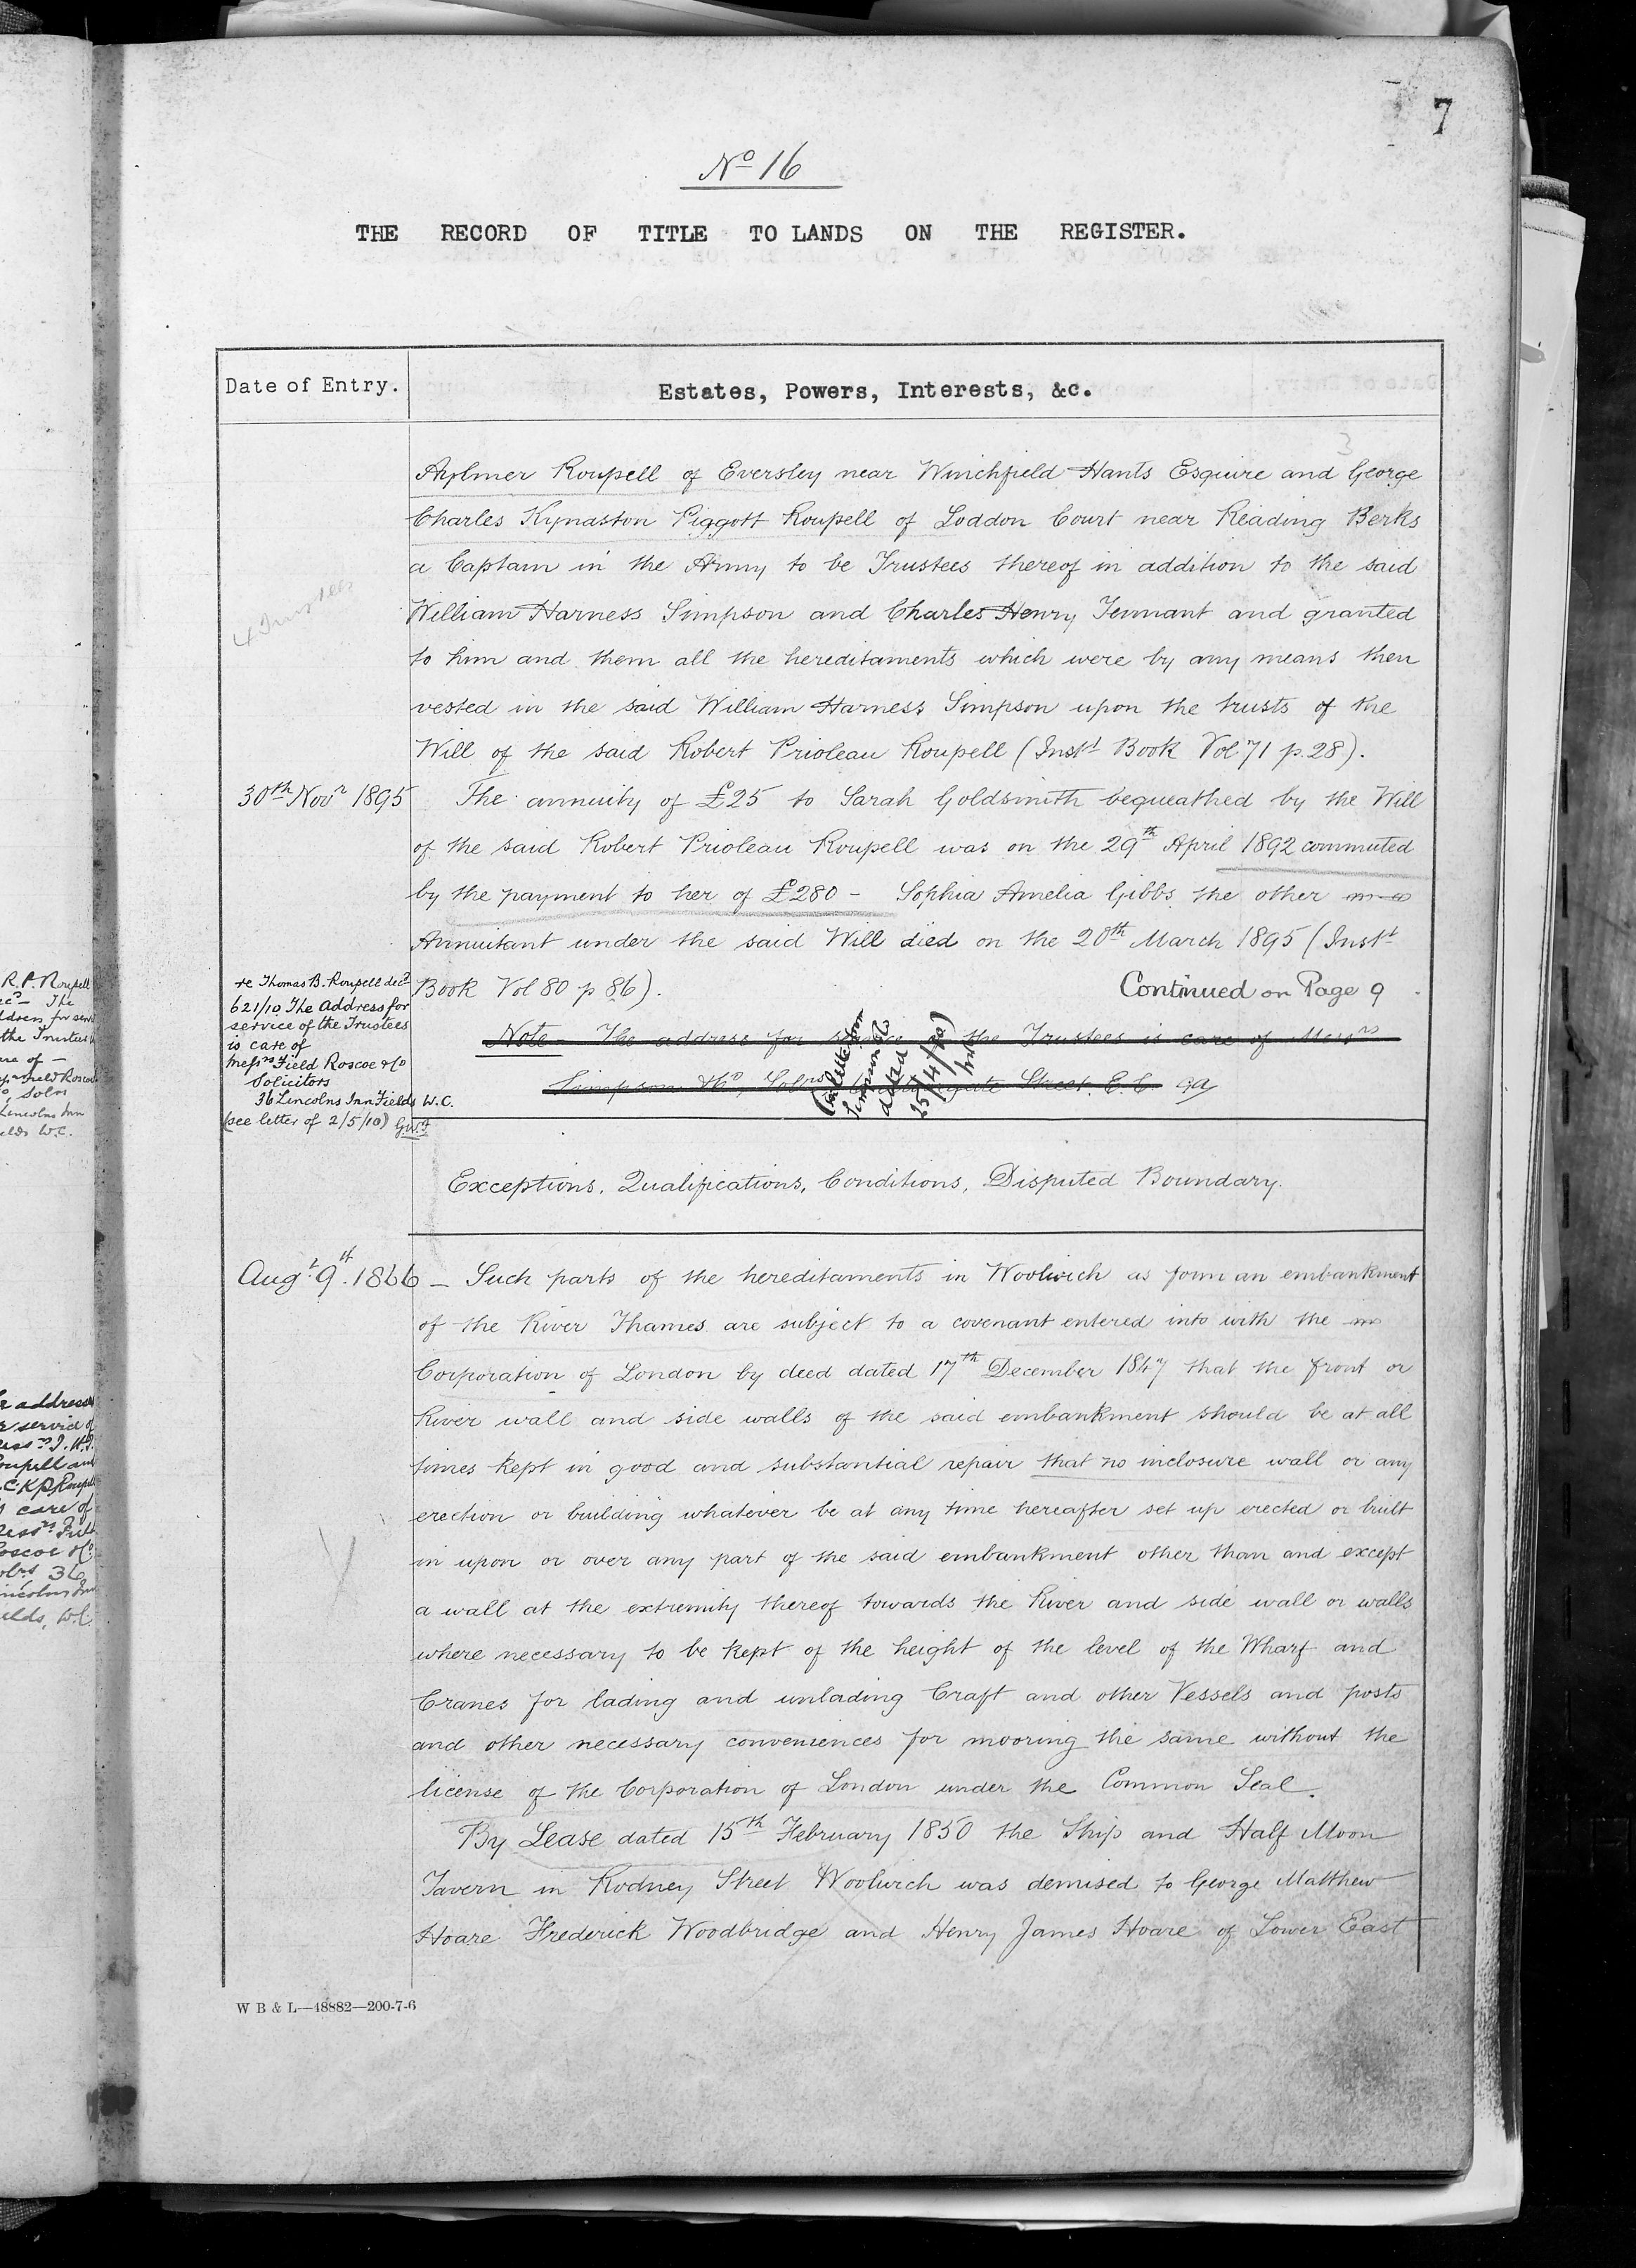 7
No 16
THE RECORD OF TITLE TO LANDS ON THE REGISTER.
Date of Entry.
Estates, Powers, Interests, &c.
Aylmer Roupell of Eversley near Winchfield Hants Esquire and George
Charles Kynaston Piggott Roupell of Loddon Court near Reading Berks
a Captain in the Army to be Trustees thereof in addition to the said
4 Trustees
William Harness Simpson and Charles Henry Tennant and granted
to him and them all the hereditaments which were by any means then
vested in the said William Harness Simpson upon the trusts of the
Will of the said Robert Prioleau Roupell (Inst Book Vol 71 p. 28).
30th Novr 1895 The annuity of £25 to Sarah Goldsmith bequeathed by the Will
of the said Robert Prioleau Roupell was on the 29th April 1892 commuted
by the payment to her of £280 - Sophia Amelia Gibbs the other
Annuitant under the said Will died on the 20th March 1895 (Inst
Book Vol 80 p 86).
Continued on Page 9
re Thomas B. Roupell decd
621/10 The Address for
service of the Trustees
is care of
Messrs Field Roscoe & Co
Solicitors
36 Lincolns Inn Fields W.C.
(see letter of 2/5/10) G.W.F
Note - The address for service the Trustees is care of Messrs
Simpson & Co, Solrs Street E.C.
dated
25/4/10)
Exceptions, Qualifications, Conditions, Disputed Boundary.
Augt 9th 1866 - Such parts of the hereditaments in Woolwich as form an embankment
of the River Thames are subject to a covenant entered into with the
Corporation of London by deed dated 17th December 1847 that the front or
River wall and side walls of the said embankment should be at all
times kept in good and substantial repair that no inclosure wall or any
erection or building whatever be at any time hereafter set up erected or built
in upon or over any part of the said embankment other than and except
a wall at the extremity thereof towards the River and side wall or walls
where necessary to be kept of the height of the level of the Wharf and
Cranes for lading and unlading Craft and other Vessels and posts
and other necessary conveniences for mooring the same without the
license of the Corporation of London under the Common Seal.
By Lease dated 15th February 1850 the Ship and Half Moon
Tavern in Rodney Street Woolwich was demised to George Matthew
Hoare Frederick Woodbridge and Henry James Hoare of Lower East
W B & L—48882—200-7-6